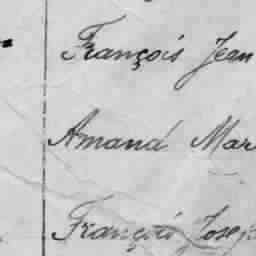 François Jean
Amand Mar
François Josep